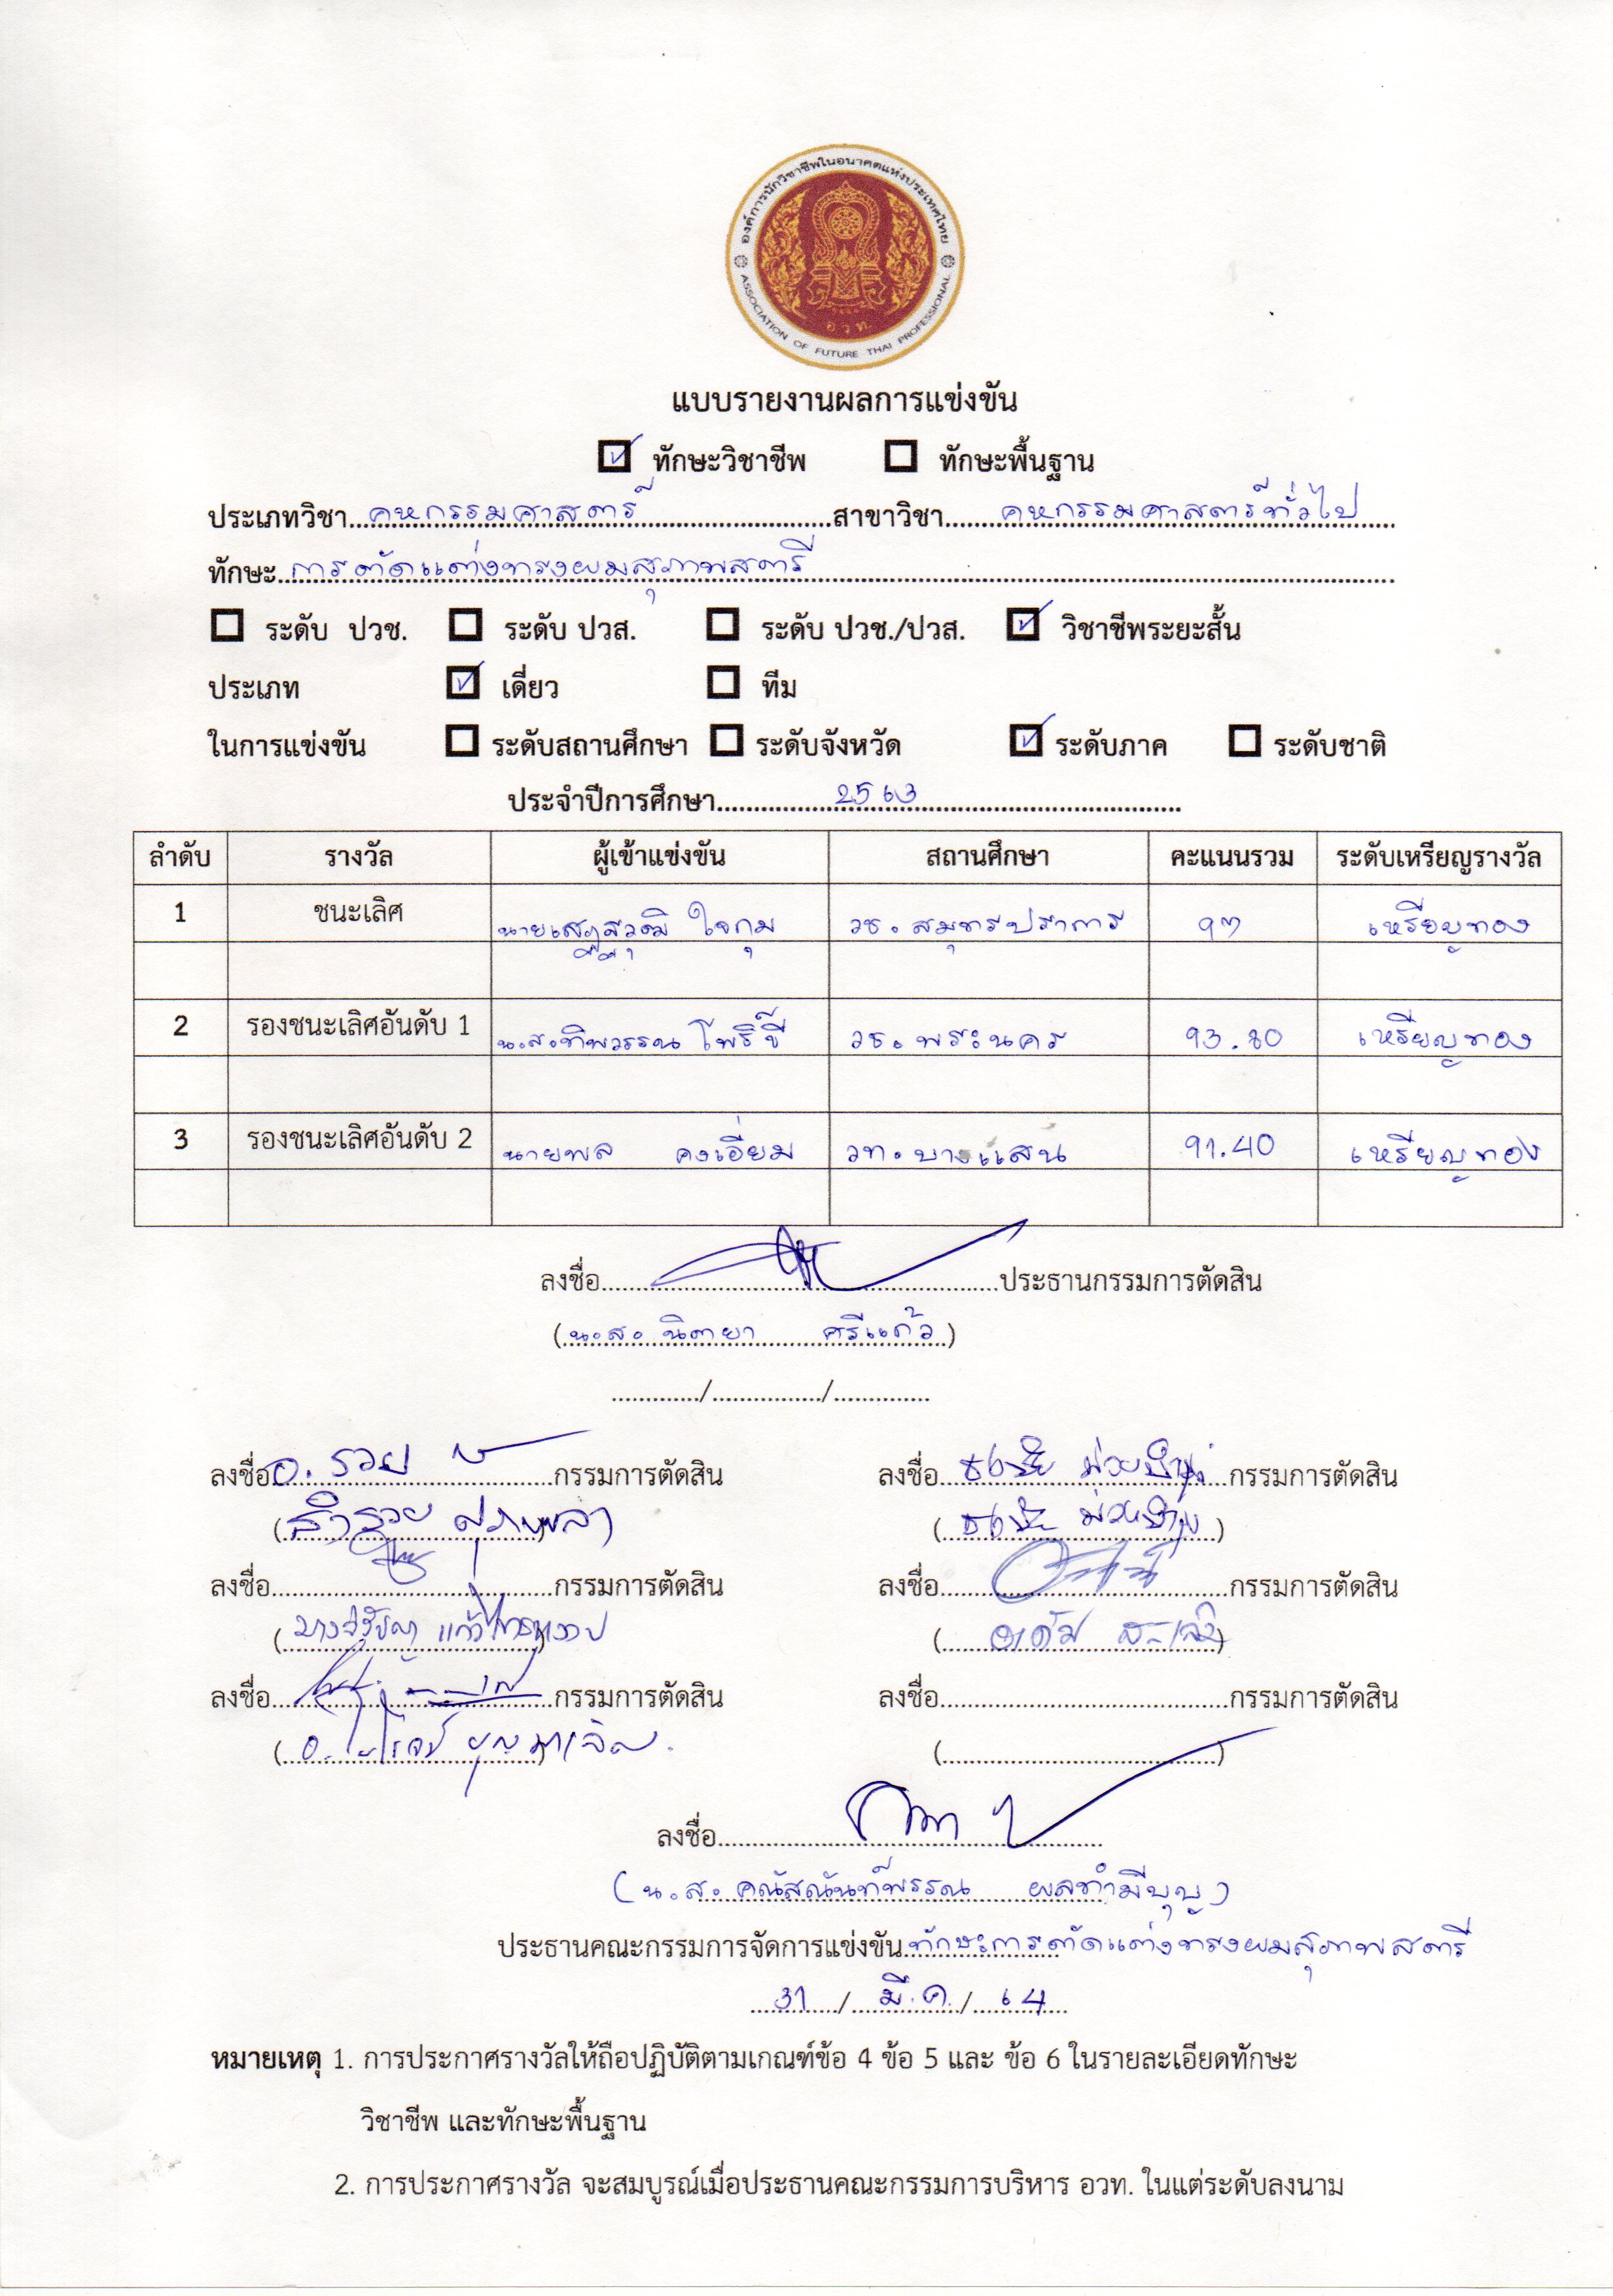 องค์การนักวิชาชีพในอนาคตแห่งประเทศไทย
อวท.
ASSOCIATION OF FUTURE THAI PROFESSIONAL
แบบรายงานผลการแข่งขัน
ทักษะวิชาชีพ ทักษะพื้นฐาน
ประเภทวิชา คหกรรมศาสตร์ สาขาวิชา คหกรรมศาสตร์ทั่วไป
ทักษะ การตัดแต่งทรงผมสุภาพสตรี
ระดับ ปวช. ระดับ ปวส. ระดับ ปวช./ปวส. วิชาชีพระยะสั้น
ประเภท เดี่ยว ทีม
ในการแข่งขัน ระดับสถานศึกษา ระดับจังหวัด ระดับภาค ระดับชาติ
ประจำปีการศึกษา 2563
ลำดับ รางวัล ผู้เข้าแข่งขัน สถานศึกษา คะแนนรวม ระดับเหรียญรางวัล
1 ชนะเลิศ ใจกุม วช. สมุทรปราการ 97 เหรียญทอง
2 รองชนะเลิศอันดับ 1 น.ส.ทิพวรรณ โพธิ์ขี วช. พระนคร 93.80 เหรียญทอง
3 รองชนะเลิศอันดับ 2 นายพล คงเอี่ยม วท. บางแสน 91.40 เหรียญทอง
ลงชื่อ ประธานกรรมการตัดสิน
(น.ส. นิตยา ศรีแก้ว)
ลงชื่อ กรรมการตัดสิน ลงชื่อ กรรมการตัดสิน
ลงชื่อ กรรมการตัดสิน ลงชื่อ กรรมการตัดสิน
ลงชื่อ กรรมการตัดสิน ลงชื่อ กรรมการตัดสิน
ลงชื่อ
(น.ส. คณัสณันท์พรรณ ผลทำมีบุญ)
ประธานคณะกรรมการจัดการแข่งขัน ทักษะการตัดแต่งทรงผมสุภาพสตรี
31 / มี.ค. / 64
หมายเหตุ 1. การประกาศรางวัลให้ถือปฏิบัติตามเกณฑ์ข้อ 4 ข้อ 5 และ ข้อ 6 ในรายละเอียดทักษะ
วิชาชีพ และทักษะพื้นฐาน
2. การประกาศรางวัล จะสมบูรณ์เมื่อประธานคณะกรรมการบริหาร อวท. ในแต่ระดับลงนาม